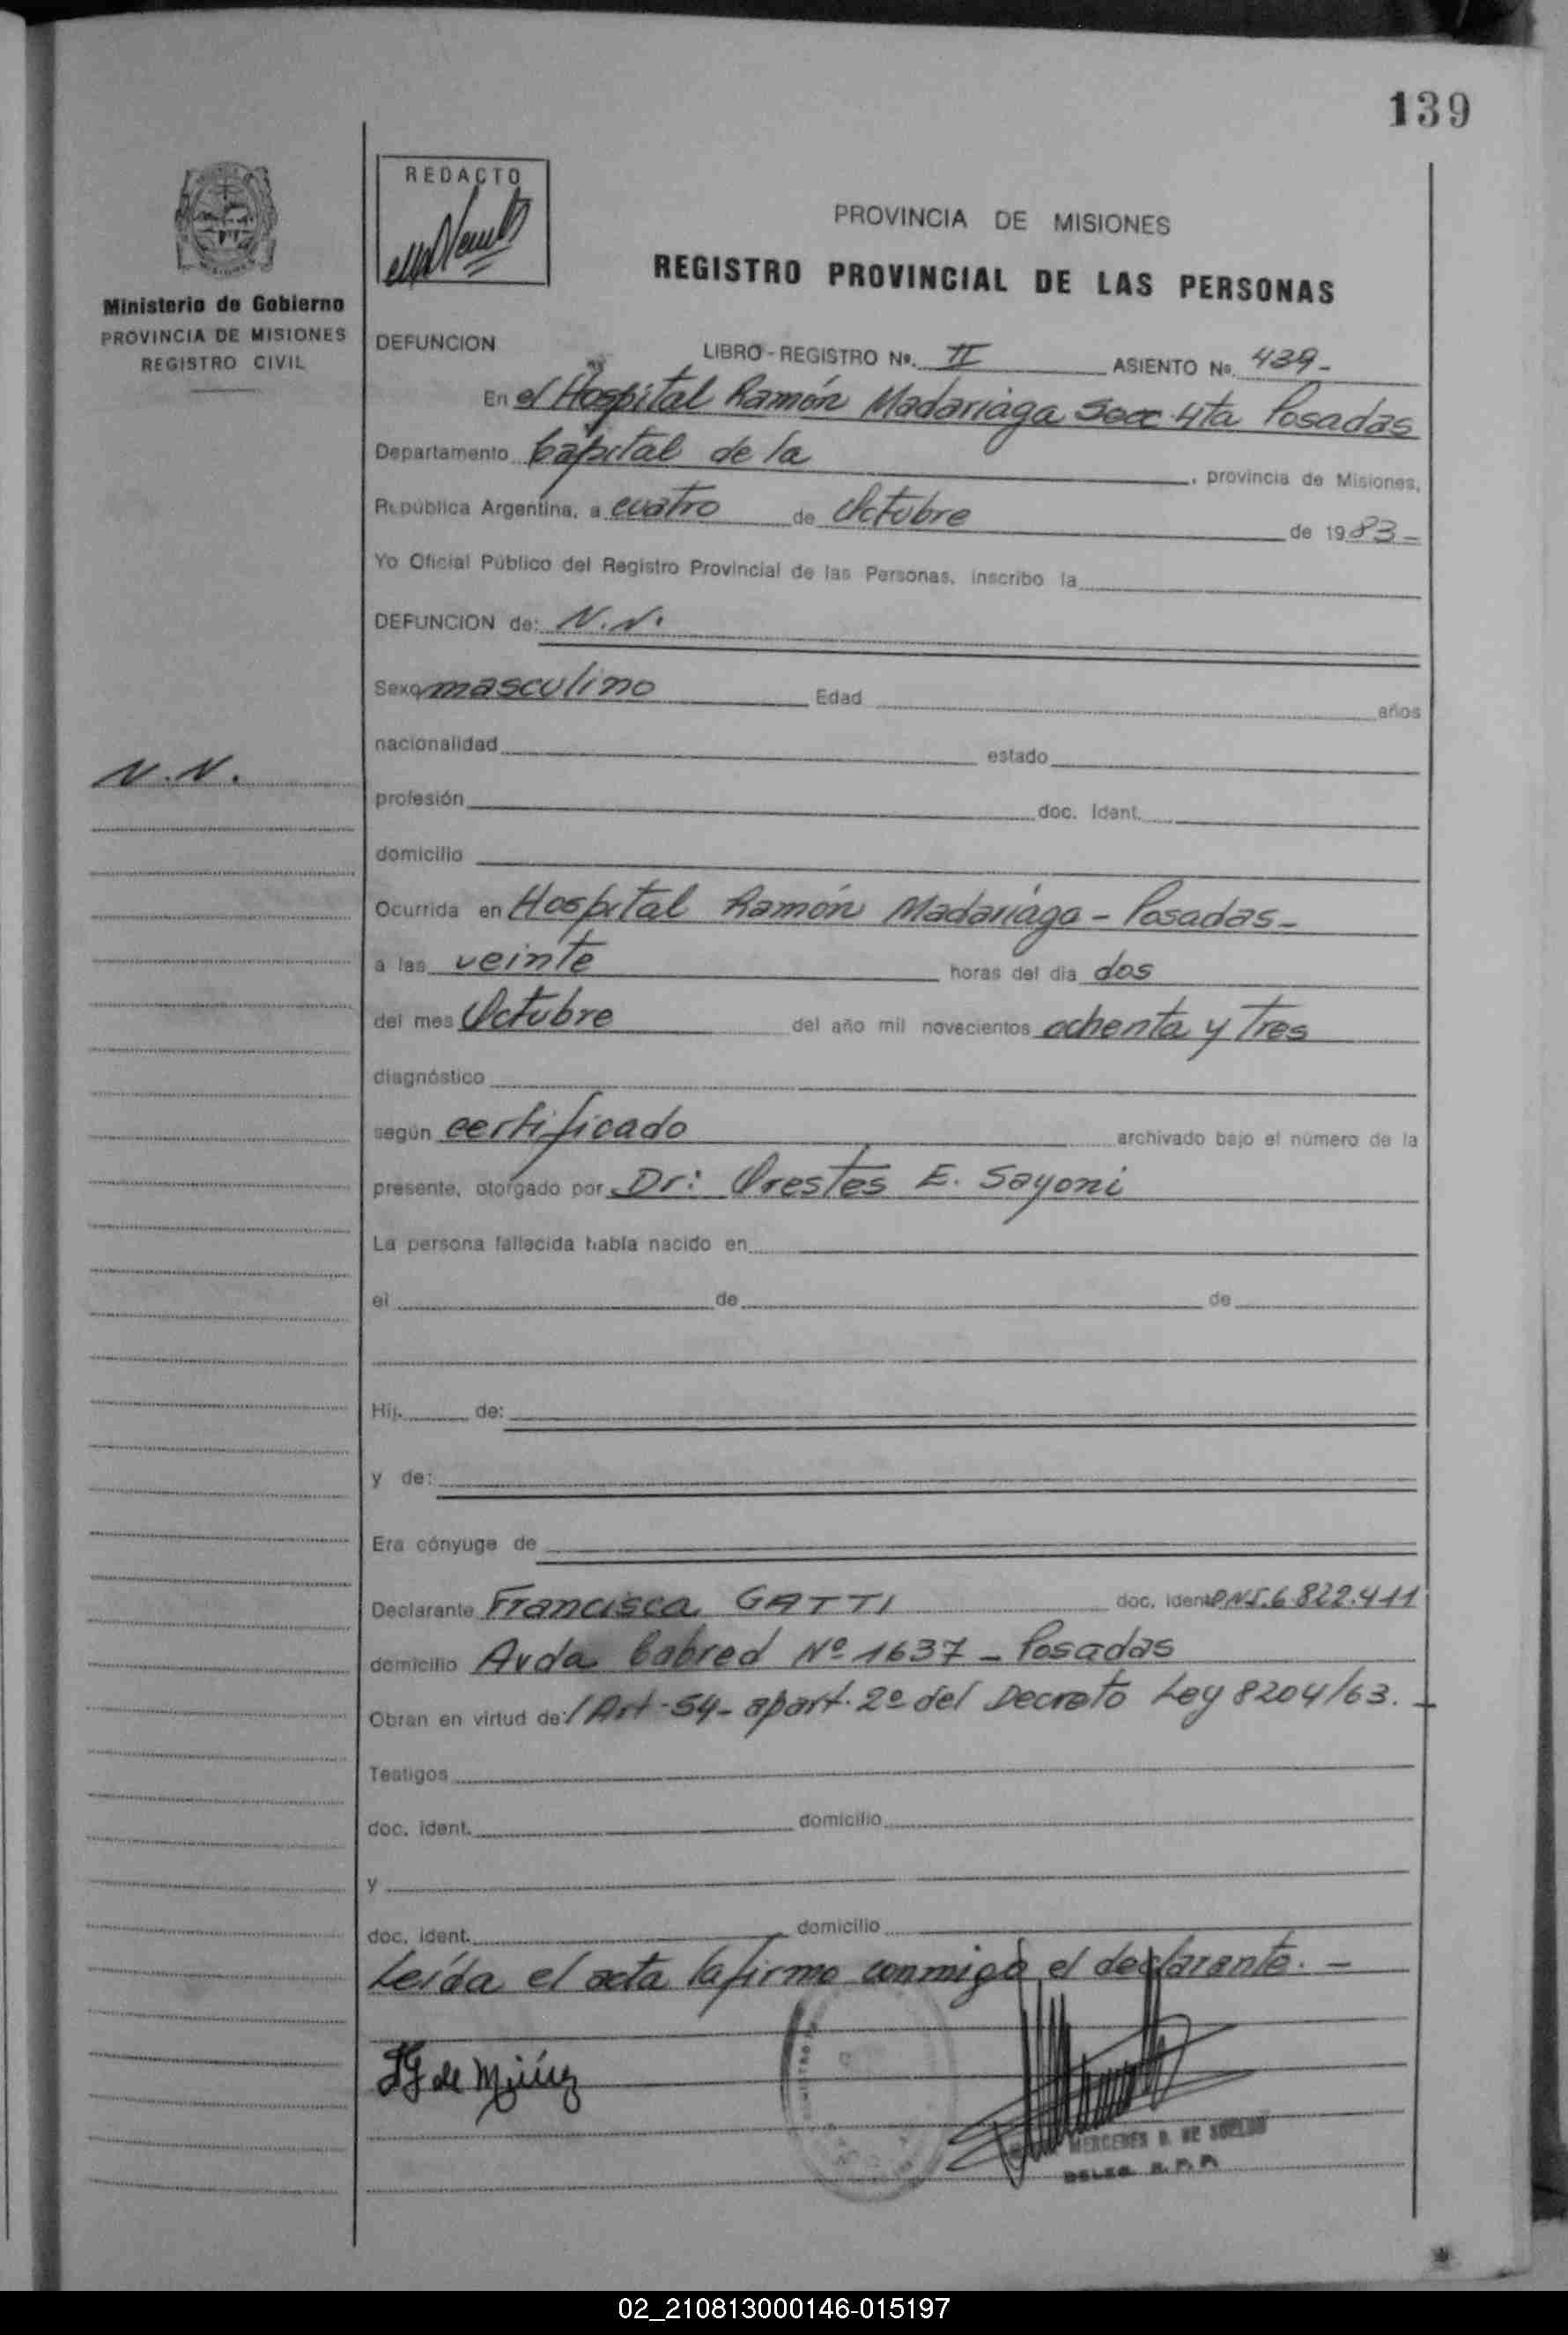 139
REDACTO
PROVINCIA DE MISIONES
REGISTRO PROVINCIAL DE LAS PERSONAS
Ministerio de Gobierno
PROVINCIA DE MISIONES
REGISTRO CIVIL
DEFUNCION LIBRO - REGISTRO Nº. II ASIENTO Nº. 439-
En el Hospital Ramón Madariaga Secc 4ta Posadas
Departamento Capital de la , provincia de Misiones,
República Argentina, a cuatro de Octubre de 1983-
Yo Oficial Público del Registro Provincial de las Personas, inscribo la
DEFUNCION de: N.N.
Sexo masculino Edad años
nacionalidad estado
N.N.
profesión doc. ident.
domicilio
Ocurrida en Hospital Ramón Madariaga - Posadas-
a las veinte horas del día dos
del mes Octubre del año mil novecientos ochenta y Tres
diagnóstico
según certificado archivado bajo el número de la
presente, otorgado por Dr: Orestes E. Sayoni
La persona fallecida había nacido en
el de de
Hij. de:
y de:
Era cónyuge de
Declarante Francisca GATTI doc. ident. DNI.6.822.411
domicilio Avda Cabred Nº 1637 - Posadas
Obran en virtud de: / Art-54- apart. 2º del Decreto Ley 8204/63. -
Testigos
doc. ident. domicilio
y
doc. ident. domicilio
Leída el acta la firma conmigo el declarante. -
MERCEDES
DELEG. R. P. P.
02_210813000146-015197